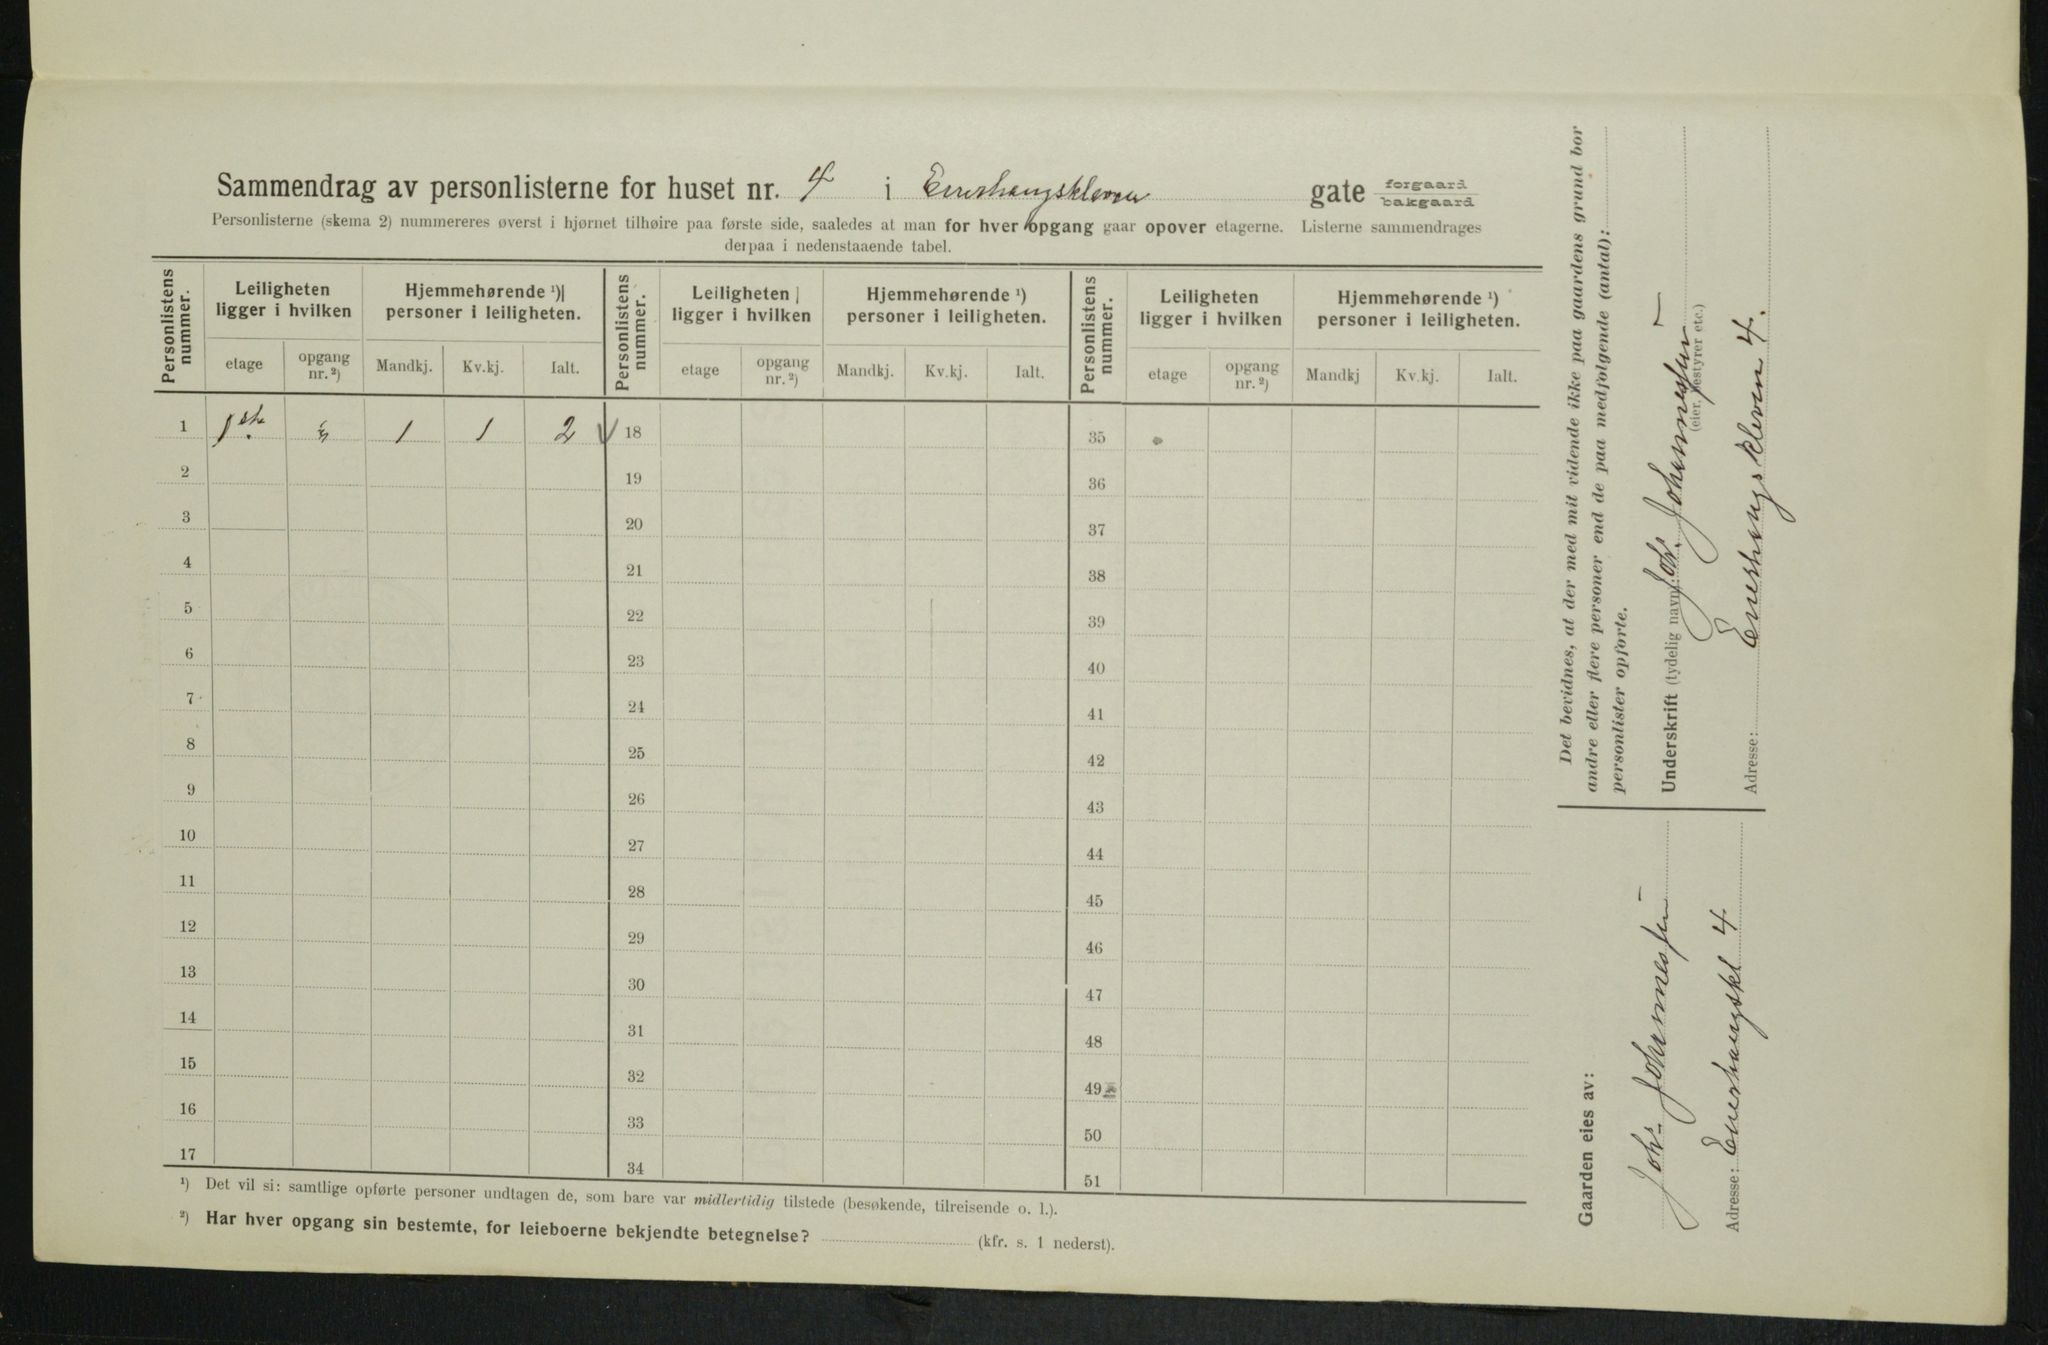 Sammendrag av personlisterne for huset nr. 4 i Enerhaugskleven gate forgaard bakgaard
Personlisterne (skema 2) nummereres øverst i hjørnet tilhøire paa første side, saaledes at man for hver opgang gaar opover etagerne. Listerne sammendrages
derpaa i nedenstaaende tabel.
Personlistens nummer. Leiligheten ligger i hvilken Hjemmehørende ¹) personer i leiligheten. Personlistens nummer. Leiligheten ligger i hvilken Hjemmehørende ¹) personer i leiligheten. Personlistens nummer. Leiligheten ligger i hvilken Hjemmehørende ¹) personer i leiligheten.
etage opgang nr. ²) Mandkj. Kv.kj. Ialt. etage opgang nr. ²) Mandkj. Kv.kj. Ialt. etage opgang nr. ²) Mandkj Kv.kj. Ialt.
1 1ste 1 1 2 18 35
2 19 36
3 20 37
4 21 38
5 22 39
6 23 40
7 24 41
8 25 42
9 26 43
10 27 44
11 28 45
12 29 46
13 30 47
14 31 48
15 32 49
16 33 50
17 34 51
¹) Det vil si: samtlige opførte personer undtagen de, som bare var midlertidig tilstede (besøkende, tilreisende o. l.).
²) Har hver opgang sin bestemte, for leieboerne bekjendte betegnelse? (kfr. s. 1 nederst).
Det bevidnes, at der med mit vidende ikke paa gaardens grund bor
andre eller flere personer end de paa medfølgende (antal):
personlister opførte.
Underskrift (tydelig navn): Johs. Johannessen
(eier, bestyrer etc.)
Adresse: Enerhaugskleven 4.
Gaarden eies av:
Johs. Johannessen
Adresse: Enerhaugskl 4